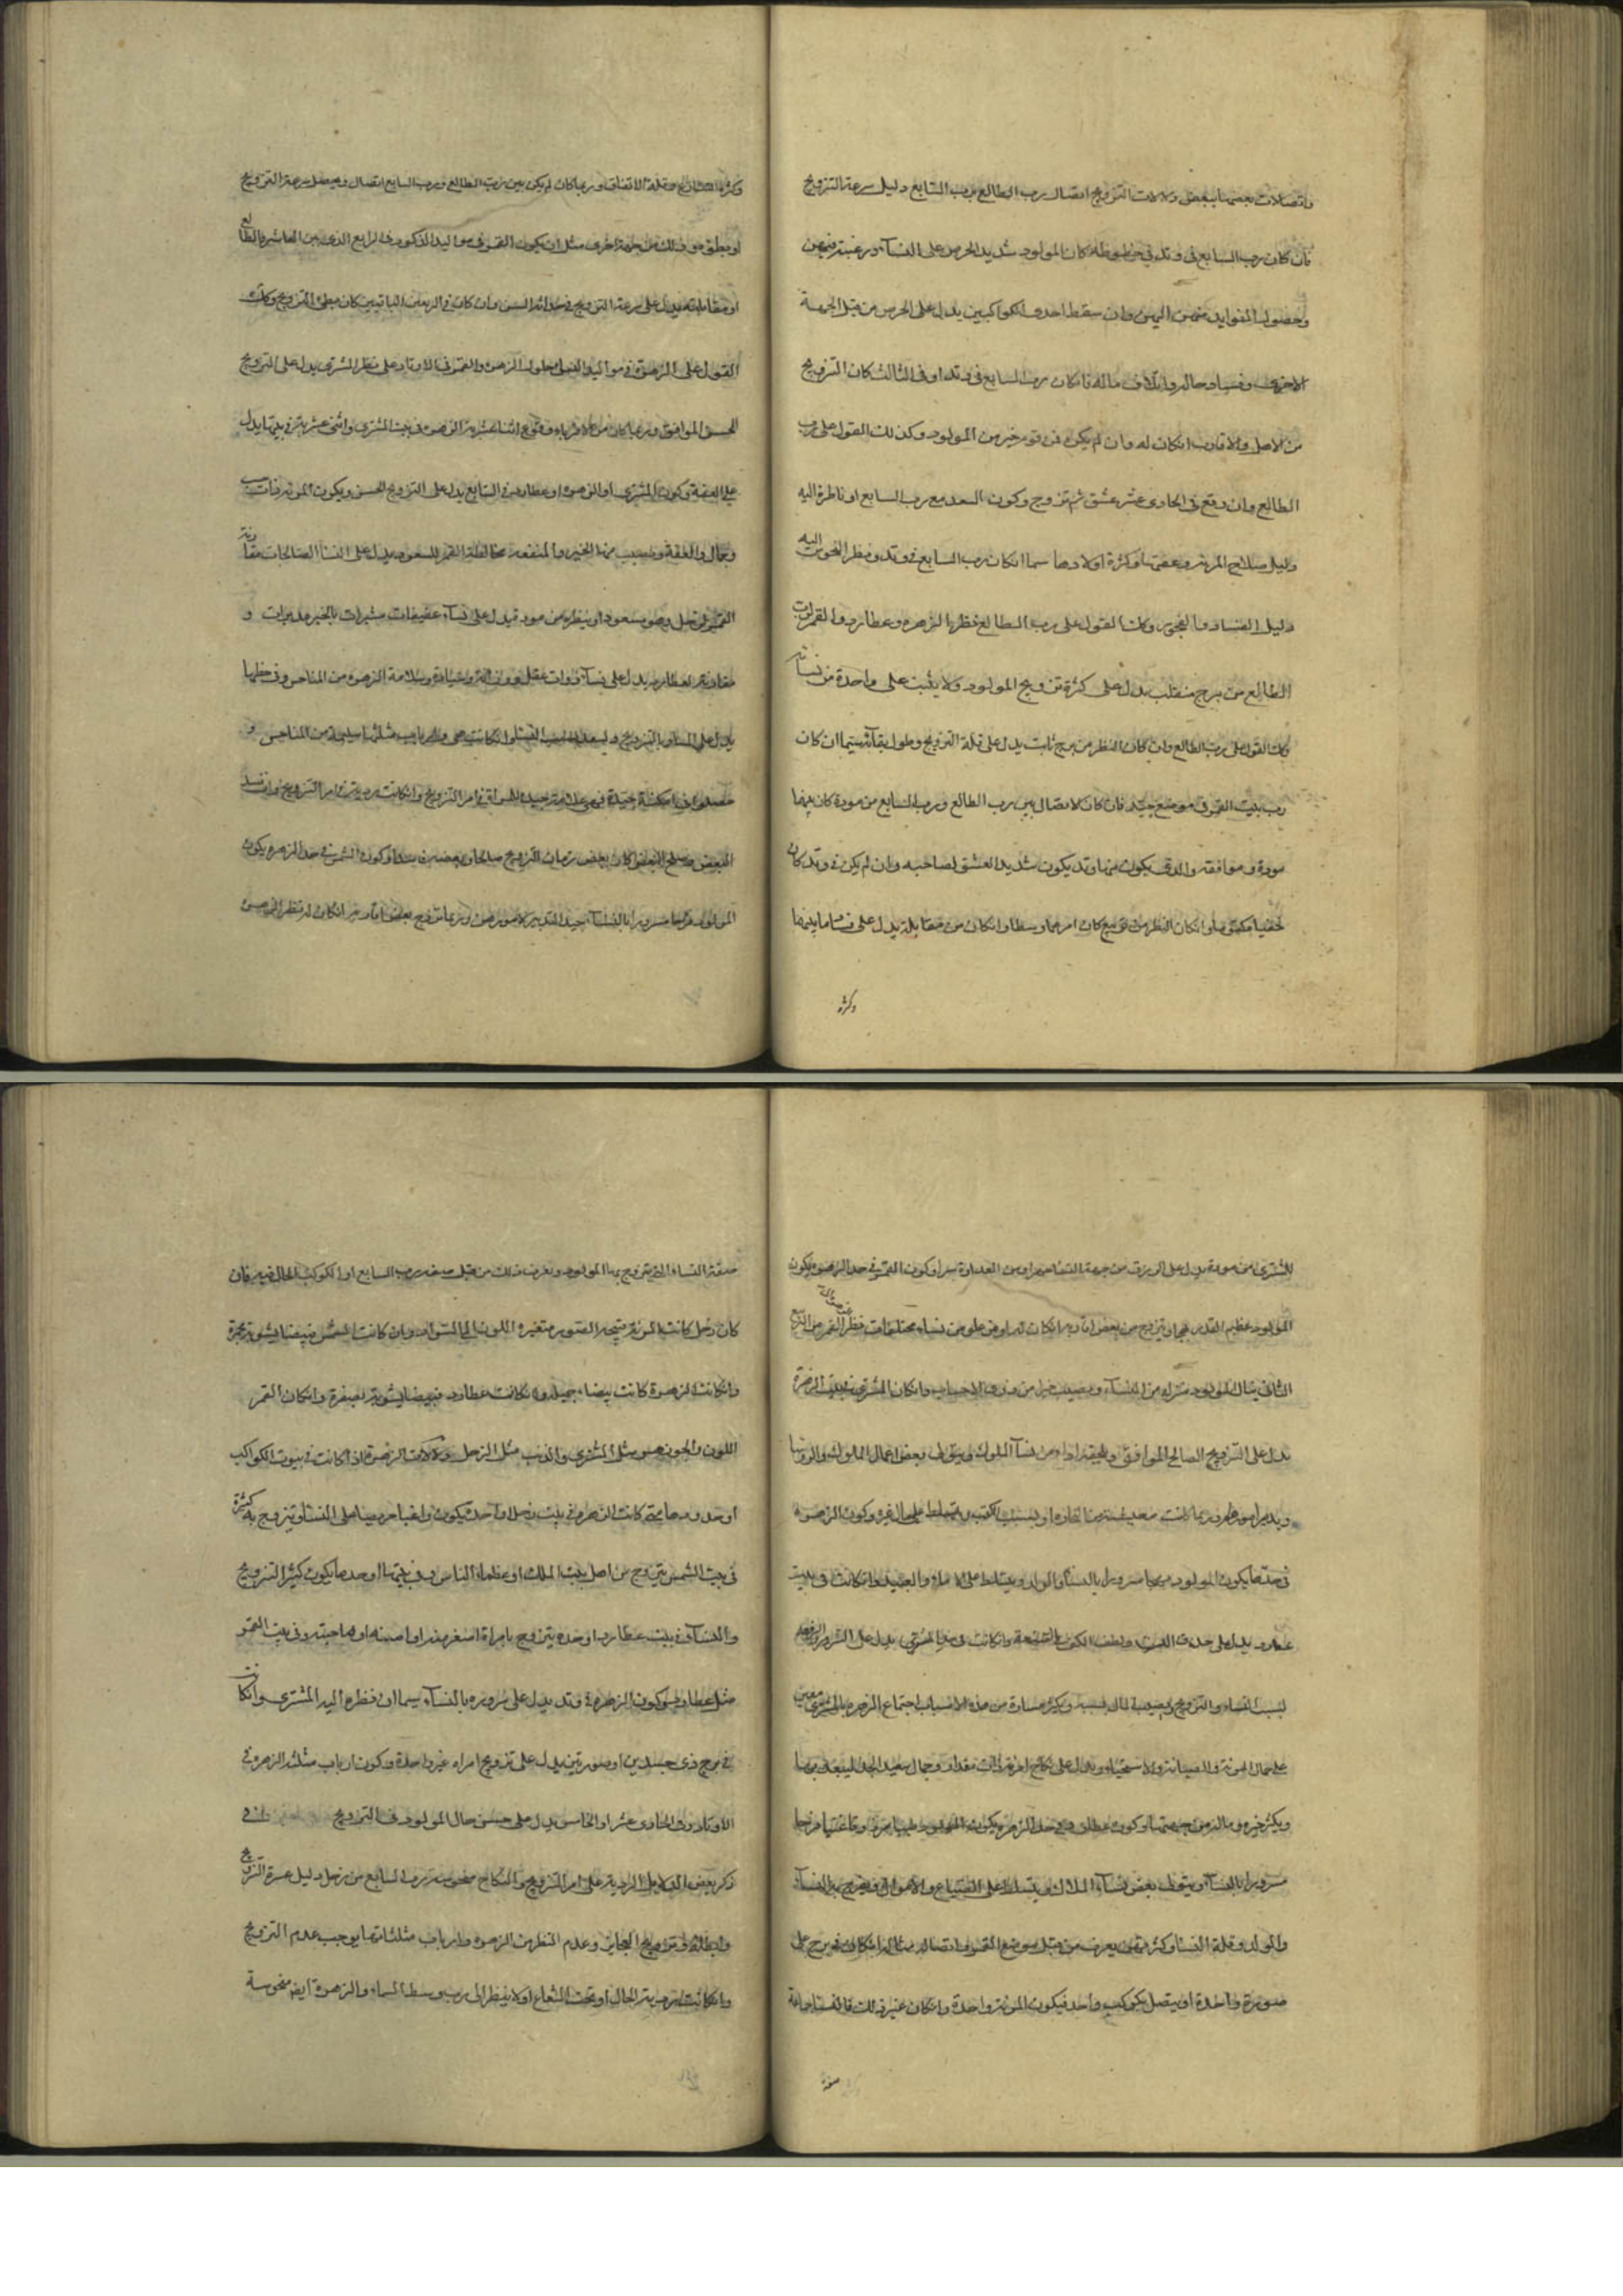 واتصالات بعضها ببعض ودلالات التزويج اتصال رب الطالع برب السابع دليل سرعة التزويج
فان كان رب السابع في وتد في حظوظه كان المولود شديد الحرص على النسآء ورغبته فيهن
وحصول الفوايد منهن اليهن وان سقط احدى الكواكبين يدل على الحرص من قبل الجهة
الاخرى وفساد حاله واتلاف ماله فانكان رب السابع في وتد او في الثالث كان التزويج
من الاهل والاقارب انكان له وان لم يكن فمن قوم خير من المولود وكذلك القول على رب
الطالع وان وقع في الحادى عشر عشق ثم تزوج وكون السعد مع رب السابع او ناظرة اليه
دليل صلاح المرءة وعفتها وكثرة اولادها سيما انكان رب السابع في وتد ونظر النحوس اليه
دليل الفساد والفجور وكذا القول على رب الطالع فنظر الزهره وعطارد والقمر لرب
الطالع من برج منقلب يدل على كثرة تزويج المولود ولا يثبت على واحدة من نسائه
وكذا القول على رب الطالع وان كان النظر من برج ثابت يدل على قلة التزويج وطول بقائه سيما ان كان
رب بيت القمر في موضع جيد فان كان الاتصال بين رب الطالع ورب السابع من مودة كان بينهما
مودة وموافقه والذى يكون منها وتد يكون شديد العشق لصاحبه وان لم يكن في وتد كان
خفيا مكتوما وانكان النظر من تربيع كان امرهما وسطا وانكان من مقابلة يدل على فساد ما بينهما
وكثرة
وكثرة التشاجر وقلة الاتفاق وربما كان لم يكن بين رب الطالع ورب السابع اتصال ويحصل سرعة التزويج
او بطؤ ذلك من جهة اخرى مثل ان يكون القمر في مواليد الذكور في الربع الذى بين العاشر والطالع
او مقابلته يدل على سرعة التزويج في حداثة السن وان كان في الربعين الباقيين كان بطئ التزويج وكذلك
القول على الزهرة في مواليد النسا وحلول الزهره والقمر في الاوتاد على نظر المشترى يدل على التزويج
الحسن الموافق وربما كان من الاقرباء ووقوع اثنا عشرية الزهره في بيت المشترى واثنى عشريته في بيتها يدل
على العفة وكون المشترى او الزهره او عطارد في السابع يدل على التزويج الحسن ويكون المرءة ذات حسب
وجمال والعفة ويصيب منها الخير والمنفعه مخالطة القمر للسعود يدل على النسا الصالحات مقارنة
القمر زحل وهو مسعود او ينظره من مودة يدل على نسآء عفيفات مشيرات بالخير مدبرات و
مقارنته لعطارد يدل على نسآء ذوات عقل وسلامة الزهره من المناحس وفي حظها
يدل على السرور بالتزويج وارباب مثلثتها سليمة من المناحس و
حصلوا في امكنة جيدة فهى علامة جيده في امر التزويج وانكانت ردية في امر التزويج وان فسد
البعض وصلح البعض كان بعض زمان التزويج صالحا وبعضه فاسدا وكون الشمس في حد الزهره يكون
المولود فرحا مسرورا بالنسآء جيد التدبير لامورهن وربما تزوج بعض اقاربه انكان له نظر الزهره
للمشترى من مودة يدل على الرزق من جهة النسآء ومن العداوة سرا وكون القمر في حد الزهره يكون
المولود عظيم القدر فيهن ويتزوج من بعض اقاربه انكان له او من نساء مختلفات فنظر القمر من الربع
الثانى ينال المولود منزله من النسآء ويصيب خيرا من ذوى الاحساب وانكان المشترى في بيت الزهرة
يدل على التزويج الصالح الموافق من نسآ الملوك ويتولى بعض اعمال الملوك والروسا
ويدبر امورهم وربما كانت معيشته من التجاره او بسبب الكتب وكون الزهره
في حدها يكون المولود فرحا مسرورا بالنسآء والولد ويتسلط على الاماء والعبيد وانكانت في بيت
عطارد يدل على حذق
لسبب النساء والتزويج ويصيب المال بسببه ويكثر مساره من هذه الاسباب اجتماع الزهره بالمشترى معين
على جمال المرءة والصيانة والاستحياء ويدل على نكاح امرءة ذات مقدار وجمال سعيد الجد
ويكثر خيره وماله من جهتها وكون عطارد في حد الزهره يكون المولود طيبا
مسرورا بالنسآء ويتولى بعض نسآء الملاك ويتسلط على الضياع والاموال ويفرح بالنسآء
والولد وقلة النسا وكثرتهن يعرف من قبل موضع القمر واتصاله مثاله انكان في برج على
صورة واحدة او يتصل بكوكب واحد فيكون المرءة واحدة وانكان غير ذلك فالنسا جماعة
صفة
صفة النساء التى يتزوج بها المولود ونعرف ذلك من قبل صفة رب السابع او الكوكب الحال فيه فان
كان زحل كانت المرءة قبيحه الصورة متغيره اللون الى السواد وان كانت الشمس فبيضا يشوبه حمرة
وانكانت الزهرة كانت بيضاء جميله وانكانت عطارد فبيضا يشوبه بصفرة وانكان القمر
اللون والجوزهر مثل المشترى والذنب مثل الزحل ودلالات الزهرة اذا كانت في بيوت الكواكب
او حدودها متى كانت الزهره في بيت زحل او حده يكون راغبا حريصا على النسا ويتزوج بكثيرة
في بيت الشمس يتزوج من اهل بيت الملك او عظماء الناس وفي بيتها او حدها يكون كثير التزويج
والنسآء في بيت عطارد او حده يتزوج بامراة اصغر منه او امينه او صاحبته وفي بيت القمر
مثل عطارد وكون الزهره في وتد يدل على سروره بالنسآء سيما ان نظره اليه المشترى وانكانت
في برج ذى جسدين او صورتين يدل على تزويج امراء غير واحدة وكون ارباب مثلثه الزهره في
الاوتاد وفي الحادى عشر او الخامس يدل على حسن حال المولود في التزويج في
ذكر بعض الدلايل الردية على امر التزويج والنكاح منحوسة رب السابع من زحل دليل عسرة التزويج
وابطائه وتزويج العجايز وعدم النظر من الزهره وارباب مثلثاتها يوجب عدم التزويج
وانكانت ردية الحال او تحت الشعاع او لا ينظر الى رب وسط السماء والزهرة ايضا منحوسة